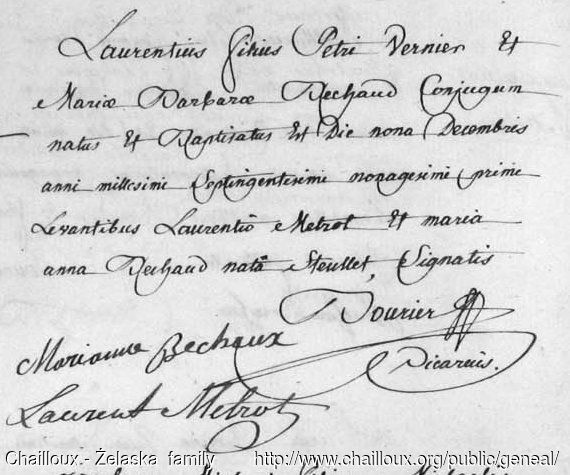 Laurentius filius Petri Vernier Et
Mariæ Barbaræ Bechaud Conjugum
natus Et Baptisatus Est Die nona Decembris
anni millesimi Septingentesimi nonagesimi primi
Levantibus Laurentio Metrot Et maria
anna Bechaud nata Steullet, Signatis
Bourier
Marianne Bechaux
Vicarius.
Laurent Metrot
Chailloux - Żelaska family http://www.chailloux.org/public/geneal/